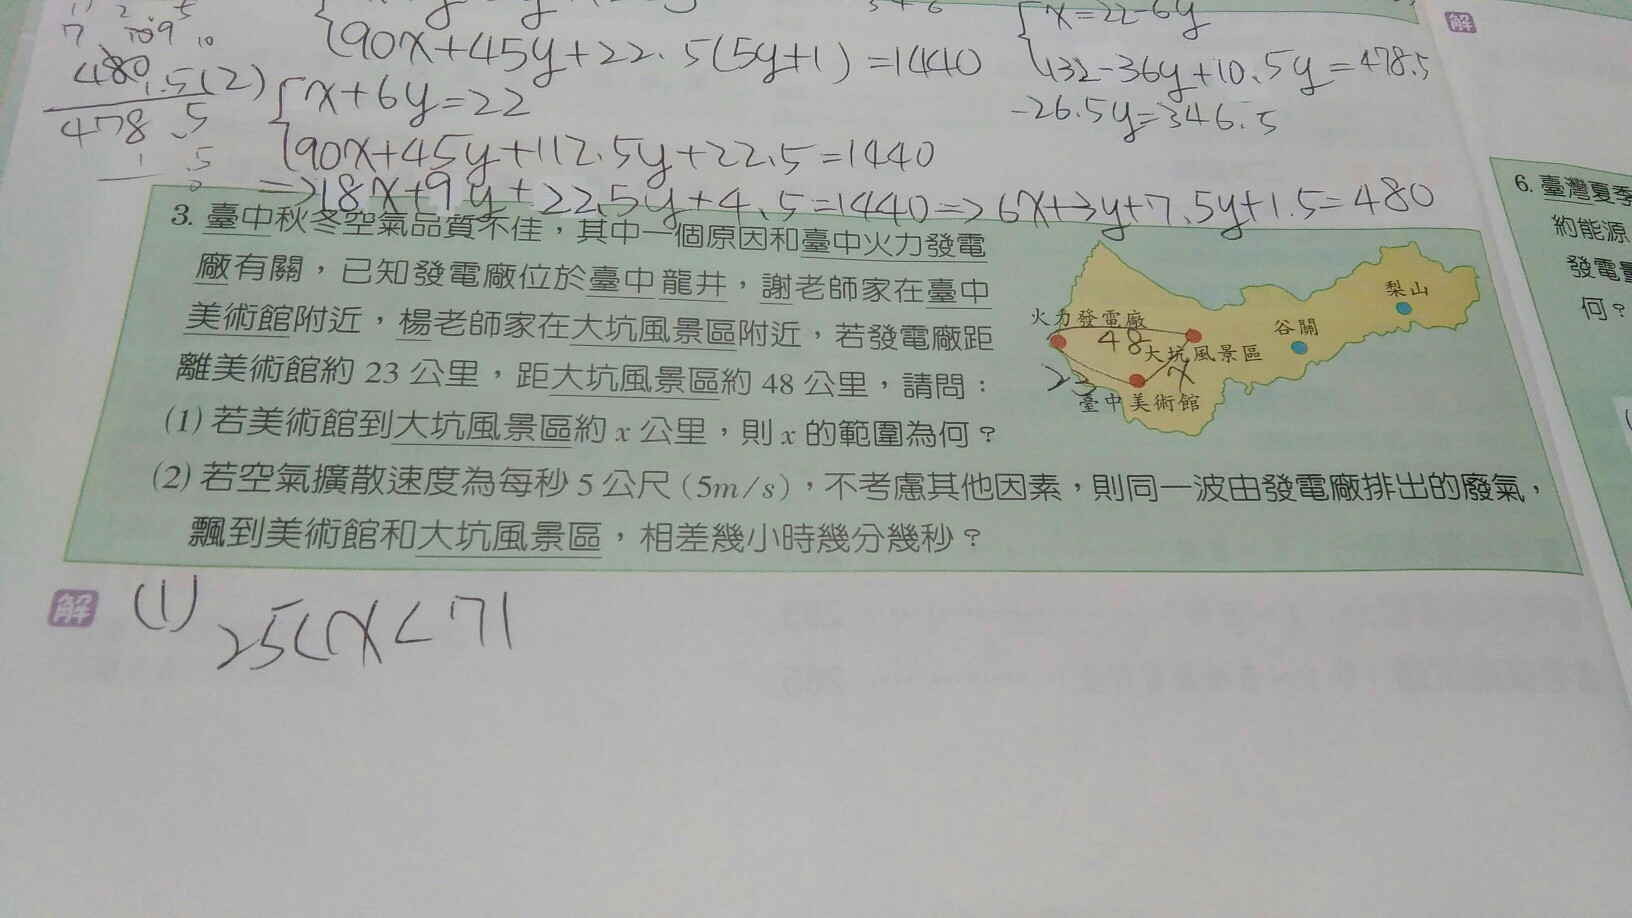 90x+45y+22.5(5y+1)=1440
x=22-6y
132-36y+10.5y=478.5
-26.5y=346.5
480
1.5
478.5
(2)
x+6y=22
90x+45y+112.5y+22.5=1440
=>18x+9y+22.5y+4.5=1440=>6x+3y+7.5y+1.5=480
3. 臺中秋冬空氣品質不佳，其中一個原因和臺中火力發電
廠有關，已知發電廠位於臺中龍井，謝老師家在臺中
美術館附近，楊老師家在大坑風景區附近，若發電廠距
離美術館約 23 公里，距大坑風景區約 48 公里，請問：
(1) 若美術館到大坑風景區約 x 公里，則 x 的範圍為何？
(2) 若空氣擴散速度為每秒 5 公尺 (5m/s)，不考慮其他因素，則同一波由發電廠排出的廢氣，
飄到美術館和大坑風景區，相差幾小時幾分幾秒？
梨山
谷關
火力發電廠
48
大坑風景區
23
x
臺中美術館
解
(1)
25<x<71
解
6. 臺灣夏季
約能源
發電量
何？